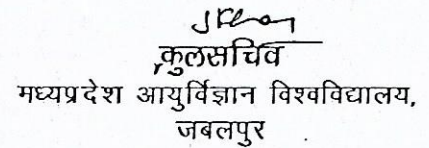 कुलसचिव
मध्यप्रदेश आयुर्विज्ञान विश्वविद्यालय,
जबलपुर